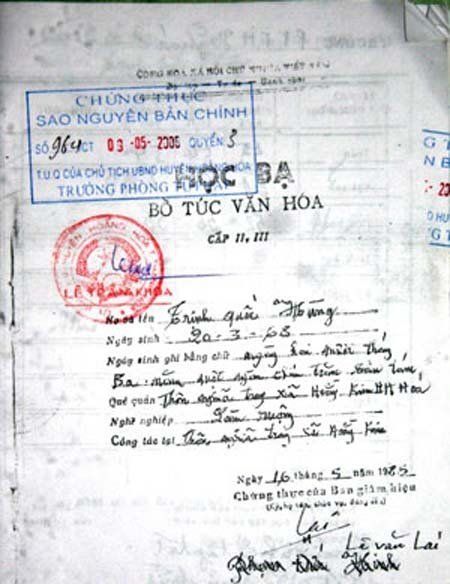 CỘNG HÒA XÃ HỘI CHỦ NGHĨA VIỆT NAM
CHỨNG THỰC
SAO NGUYÊN BẢN CHÍNH
SỐ 964 CT 03-05-2006 QUYỂN 3
T.U.Q CỦA CHỦ TỊCH UBND HUYỆN HOẰNG HÓA
TRƯỞNG PHÒNG TƯ PHÁP
HỌC BẠ
BỔ TÚC VĂN HÓA
CẤP II, III
HUYỆN HOẰNG HÓA
Họ và tên Trịnh quốc Hùng
Ngày sinh 20-3-68
Ngày sinh ghi bằng chữ ngày hai mươi tháng
Ba năm một nghìn chín trăm sáu tám
Quê quán Thôn nghĩa trang xã Hoằng Kim HH
Nghề nghiệp Làm ruộng
Công tác tại Thôn nghĩa trang Xã Hoằng Kim
Ngày 16 tháng 5 năm 1985
Chứng thực của Ban giám hiệu
Lê văn Lai